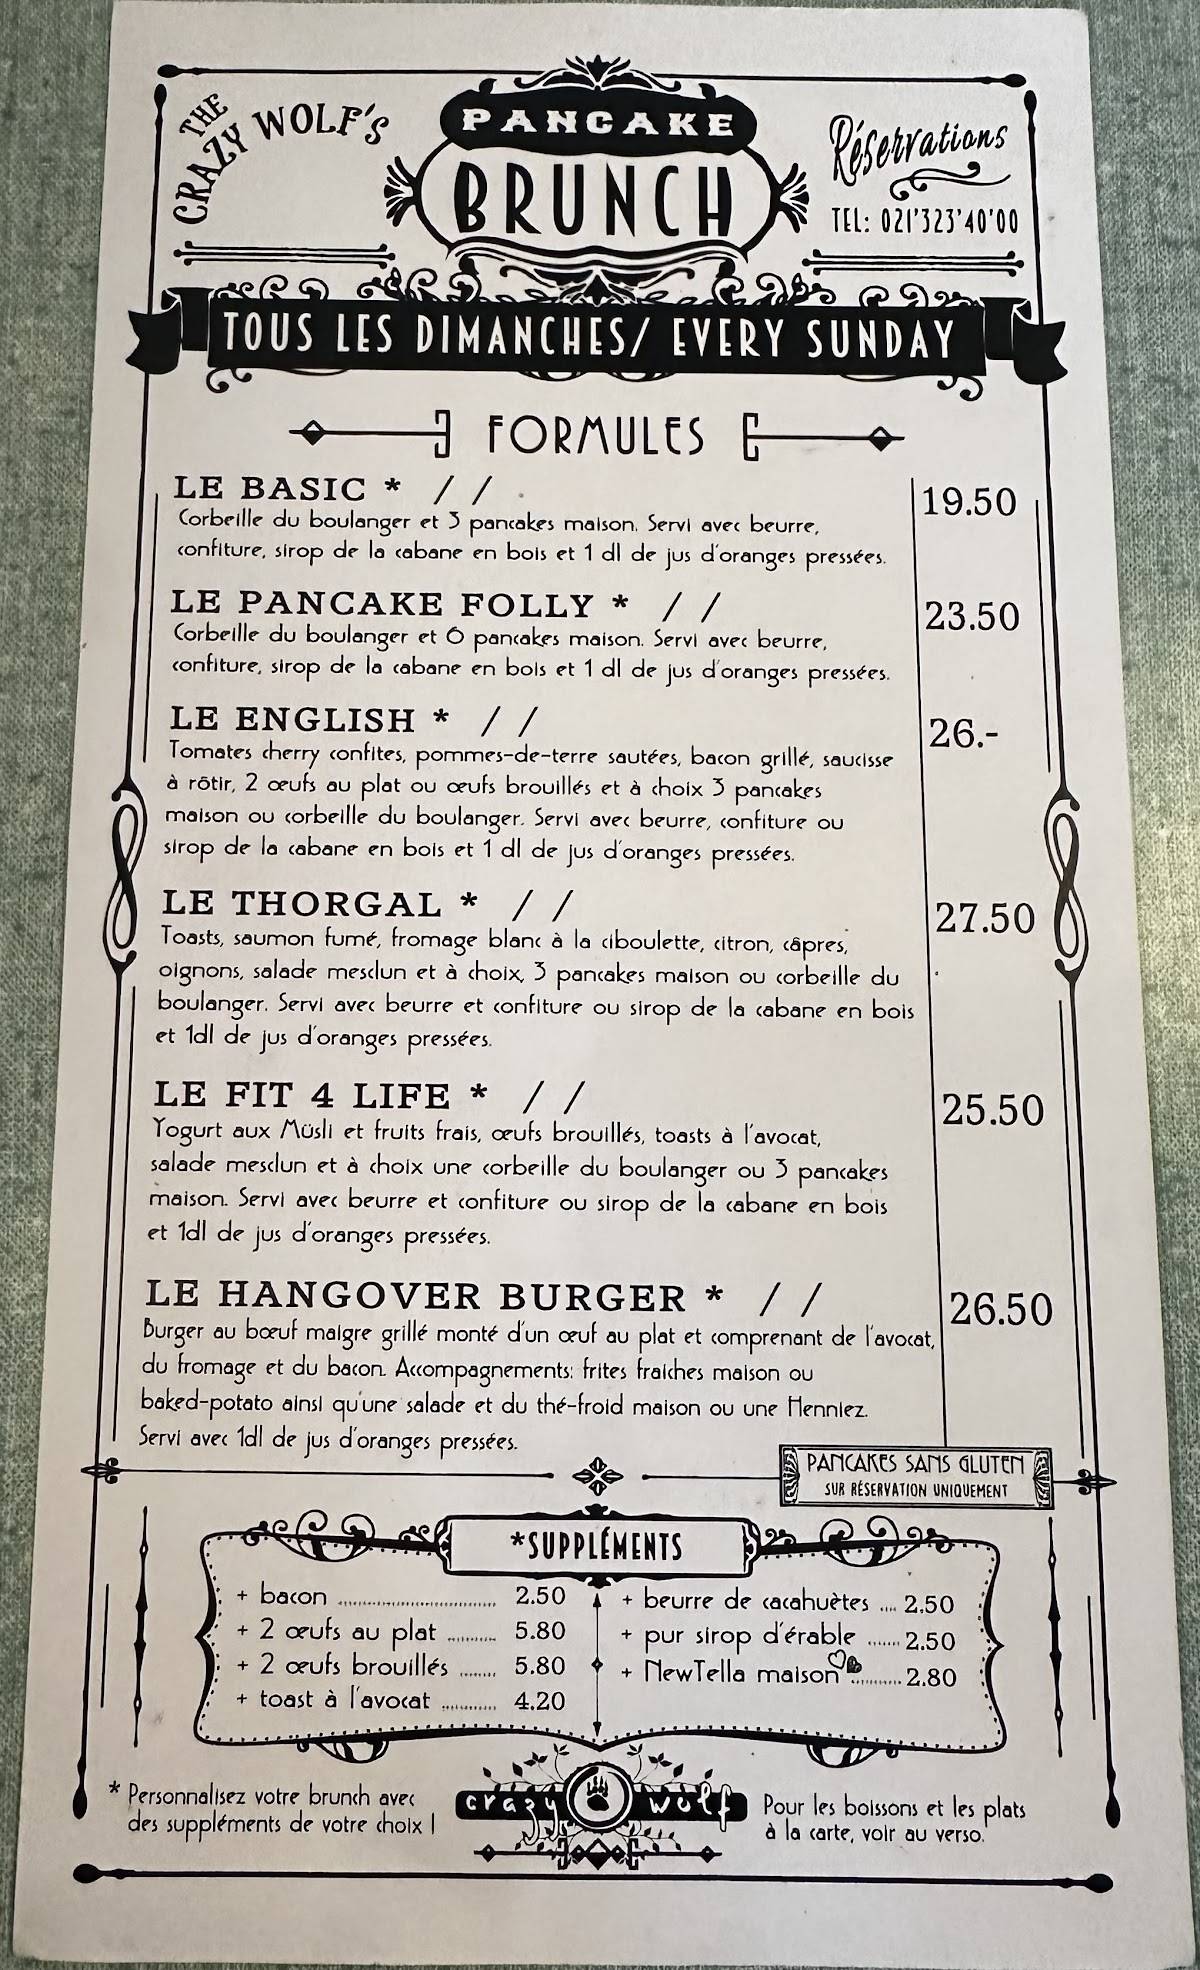 THE CRAZY WOLF'S
PANCAKE
BRUNCH
Réservations
TEL: 021'323'40'00
TOUS LES DIMANCHES/ EVERY SUNDAY
FORMULES
LE BASIC * / / 19.50
Corbeille du boulanger et 3 pancakes maison. Servi avec beurre,
confiture, sirop de la cabane en bois et 1 dl de jus d'oranges pressées.
LE PANCAKE FOLLY * / / 23.50
Corbeille du boulanger et 6 pancakes maison. Servi avec beurre,
confiture, sirop de la cabane en bois et 1 dl de jus d'oranges pressées.
LE ENGLISH * / / 26.-
Tomates cherry confites, pommes-de-terre sautées, bacon grillé, saucisse
à rôtir, 2 œufs au plat ou œufs brouillés et à choix 3 pancakes
maison ou corbeille du boulanger. Servi avec beurre, confiture ou
sirop de la cabane en bois et 1 dl de jus d'oranges pressées.
LE THORGAL * / / 27.50
Toasts, saumon fumé, fromage blanc à la ciboulette, citron, câpres,
oignons, salade mesclun et à choix, 3 pancakes maison ou corbeille du
boulanger. Servi avec beurre et confiture ou sirop de la cabane en bois
et 1dl de jus d'oranges pressées.
LE FIT 4 LIFE * / / 25.50
Yogurt aux Müsli et fruits frais, œufs brouillés, toasts à l'avocat,
salade mesclun et à choix une corbeille du boulanger ou 3 pancakes
maison. Servi avec beurre et confiture ou sirop de la cabane en bois
et 1dl de jus d'oranges pressées.
LE HANGOVER BURGER * / / 26.50
Burger au bœuf maigre grillé monté d'un œuf au plat et comprenant de l'avocat,
du fromage et du bacon. Accompagnements: frites fraiches maison ou
baked-potato ainsi qu'une salade et du thé-froid maison ou une Henniez.
Servi avec 1dl de jus d'oranges pressées.
PANCAKES SANS GLUTEN
SUR RÉSERVATION UNIQUEMENT
*SUPPLÉMENTS
+ bacon 2.50
+ 2 œufs au plat 5.80
+ 2 œufs brouillés 5.80
+ toast à l'avocat 4.20
+ beurre de cacahuètes 2.50
+ pur sirop d'érable 2.50
+ NewTella maison 2.80
* Personnalisez votre brunch avec
des suppléments de votre choix !
crazy wolf
Pour les boissons et les plats
à la carte, voir au verso.